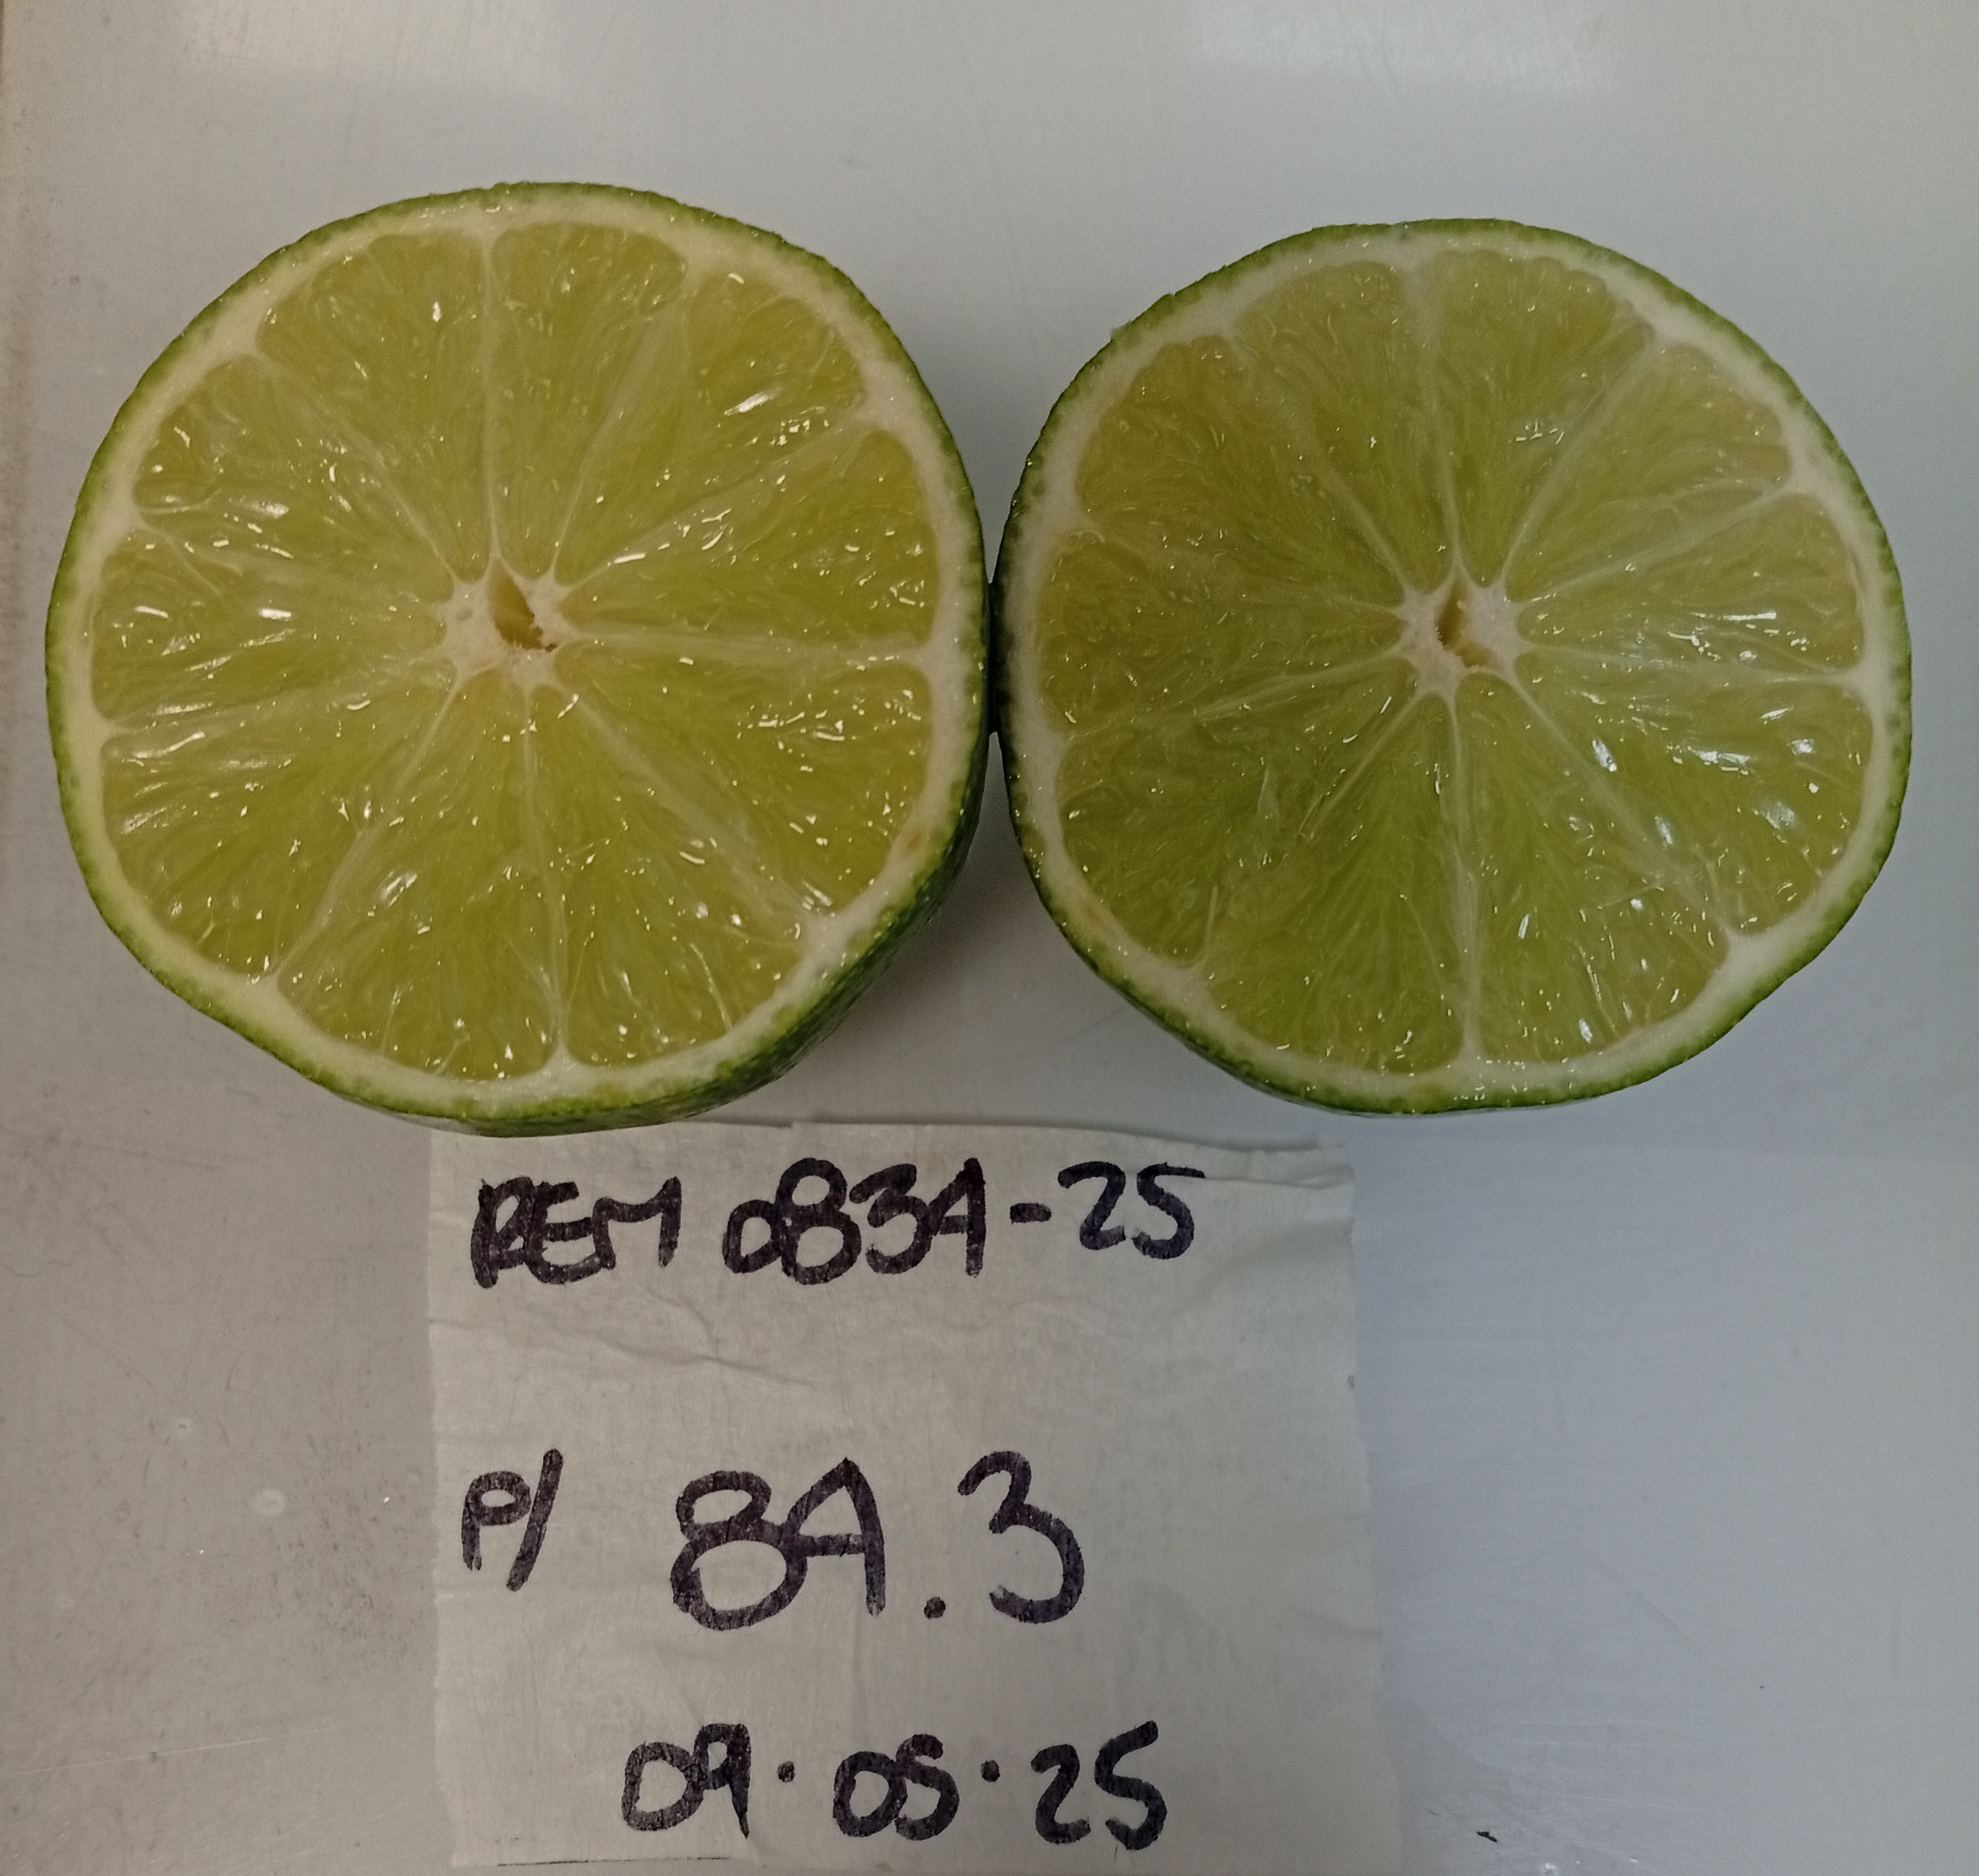 REM 0834-25
P/ 84.3
09.05.25